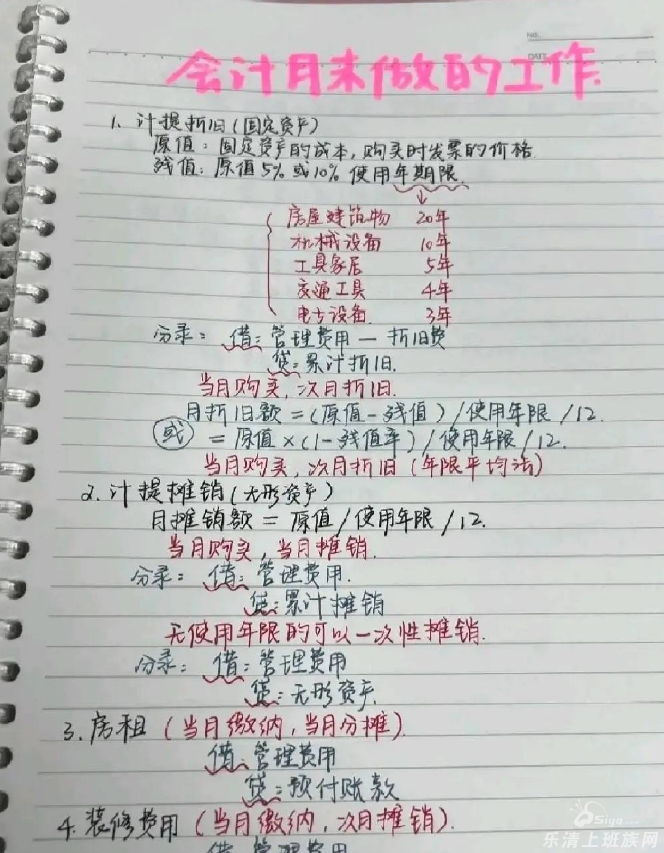 NO.
DATE
会计月末做的工作.
1、计提折旧(固定资产)
原值:固定资产的成本,购买时发票的价格
残值:原值5%或10% 使用年期限
房屋建筑物 20年
机械设备 10年
工具家居 5年
交通工具 4年
电子设备 3年
分录:借:管理费用—折旧费
贷:累计折旧.
当月购买,次月折旧.
月折旧额=(原值-残值)/使用年限/12.
或 =原值×(1-残值率)/使用年限/12.
当月购买,次月折旧(年限平均法)
2.计提摊销(无形资产)
月摊销额=原值/使用年限/12.
当月购买,当月摊销.
分录:借:管理费用.
贷:累计摊销
无使用年限的可以一次性摊销.
分录:借:管理费用
贷:无形资产.
3.房租(当月缴纳,当月分摊).
借:管理费用
贷:预付账款
4.装修费用(当月缴纳,次月摊销).
借:管理费用
乐清上班族网